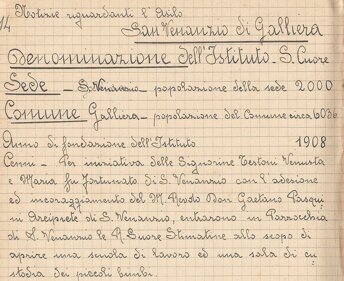 14 Notizie riguardanti l'Asilo
San Venanzio di Galliera
Denominazione dell'Istituto - S. Cuore
Sede - S. Venanzio - popolazione della sede 2000
Comune Galliera - popolazione del Comune circa 6036
Anno di fondazione dell'Istituto 1908
Cenni - Per iniziativa delle Signorine Testoni Venusta
e Maria fu Fortunato di S. Venanzio con l'adesione
ed incoraggiamento del M. Revdo Don Gaetano Pasqui
ni Arciprete di S. Venanzio, entrarono in Parrocchia
di S. Venanzio le R. Suore Stimatine allo scopo di
aprire una scuola di lavoro ed una sala di cu
stodia dei piccoli bimbi.